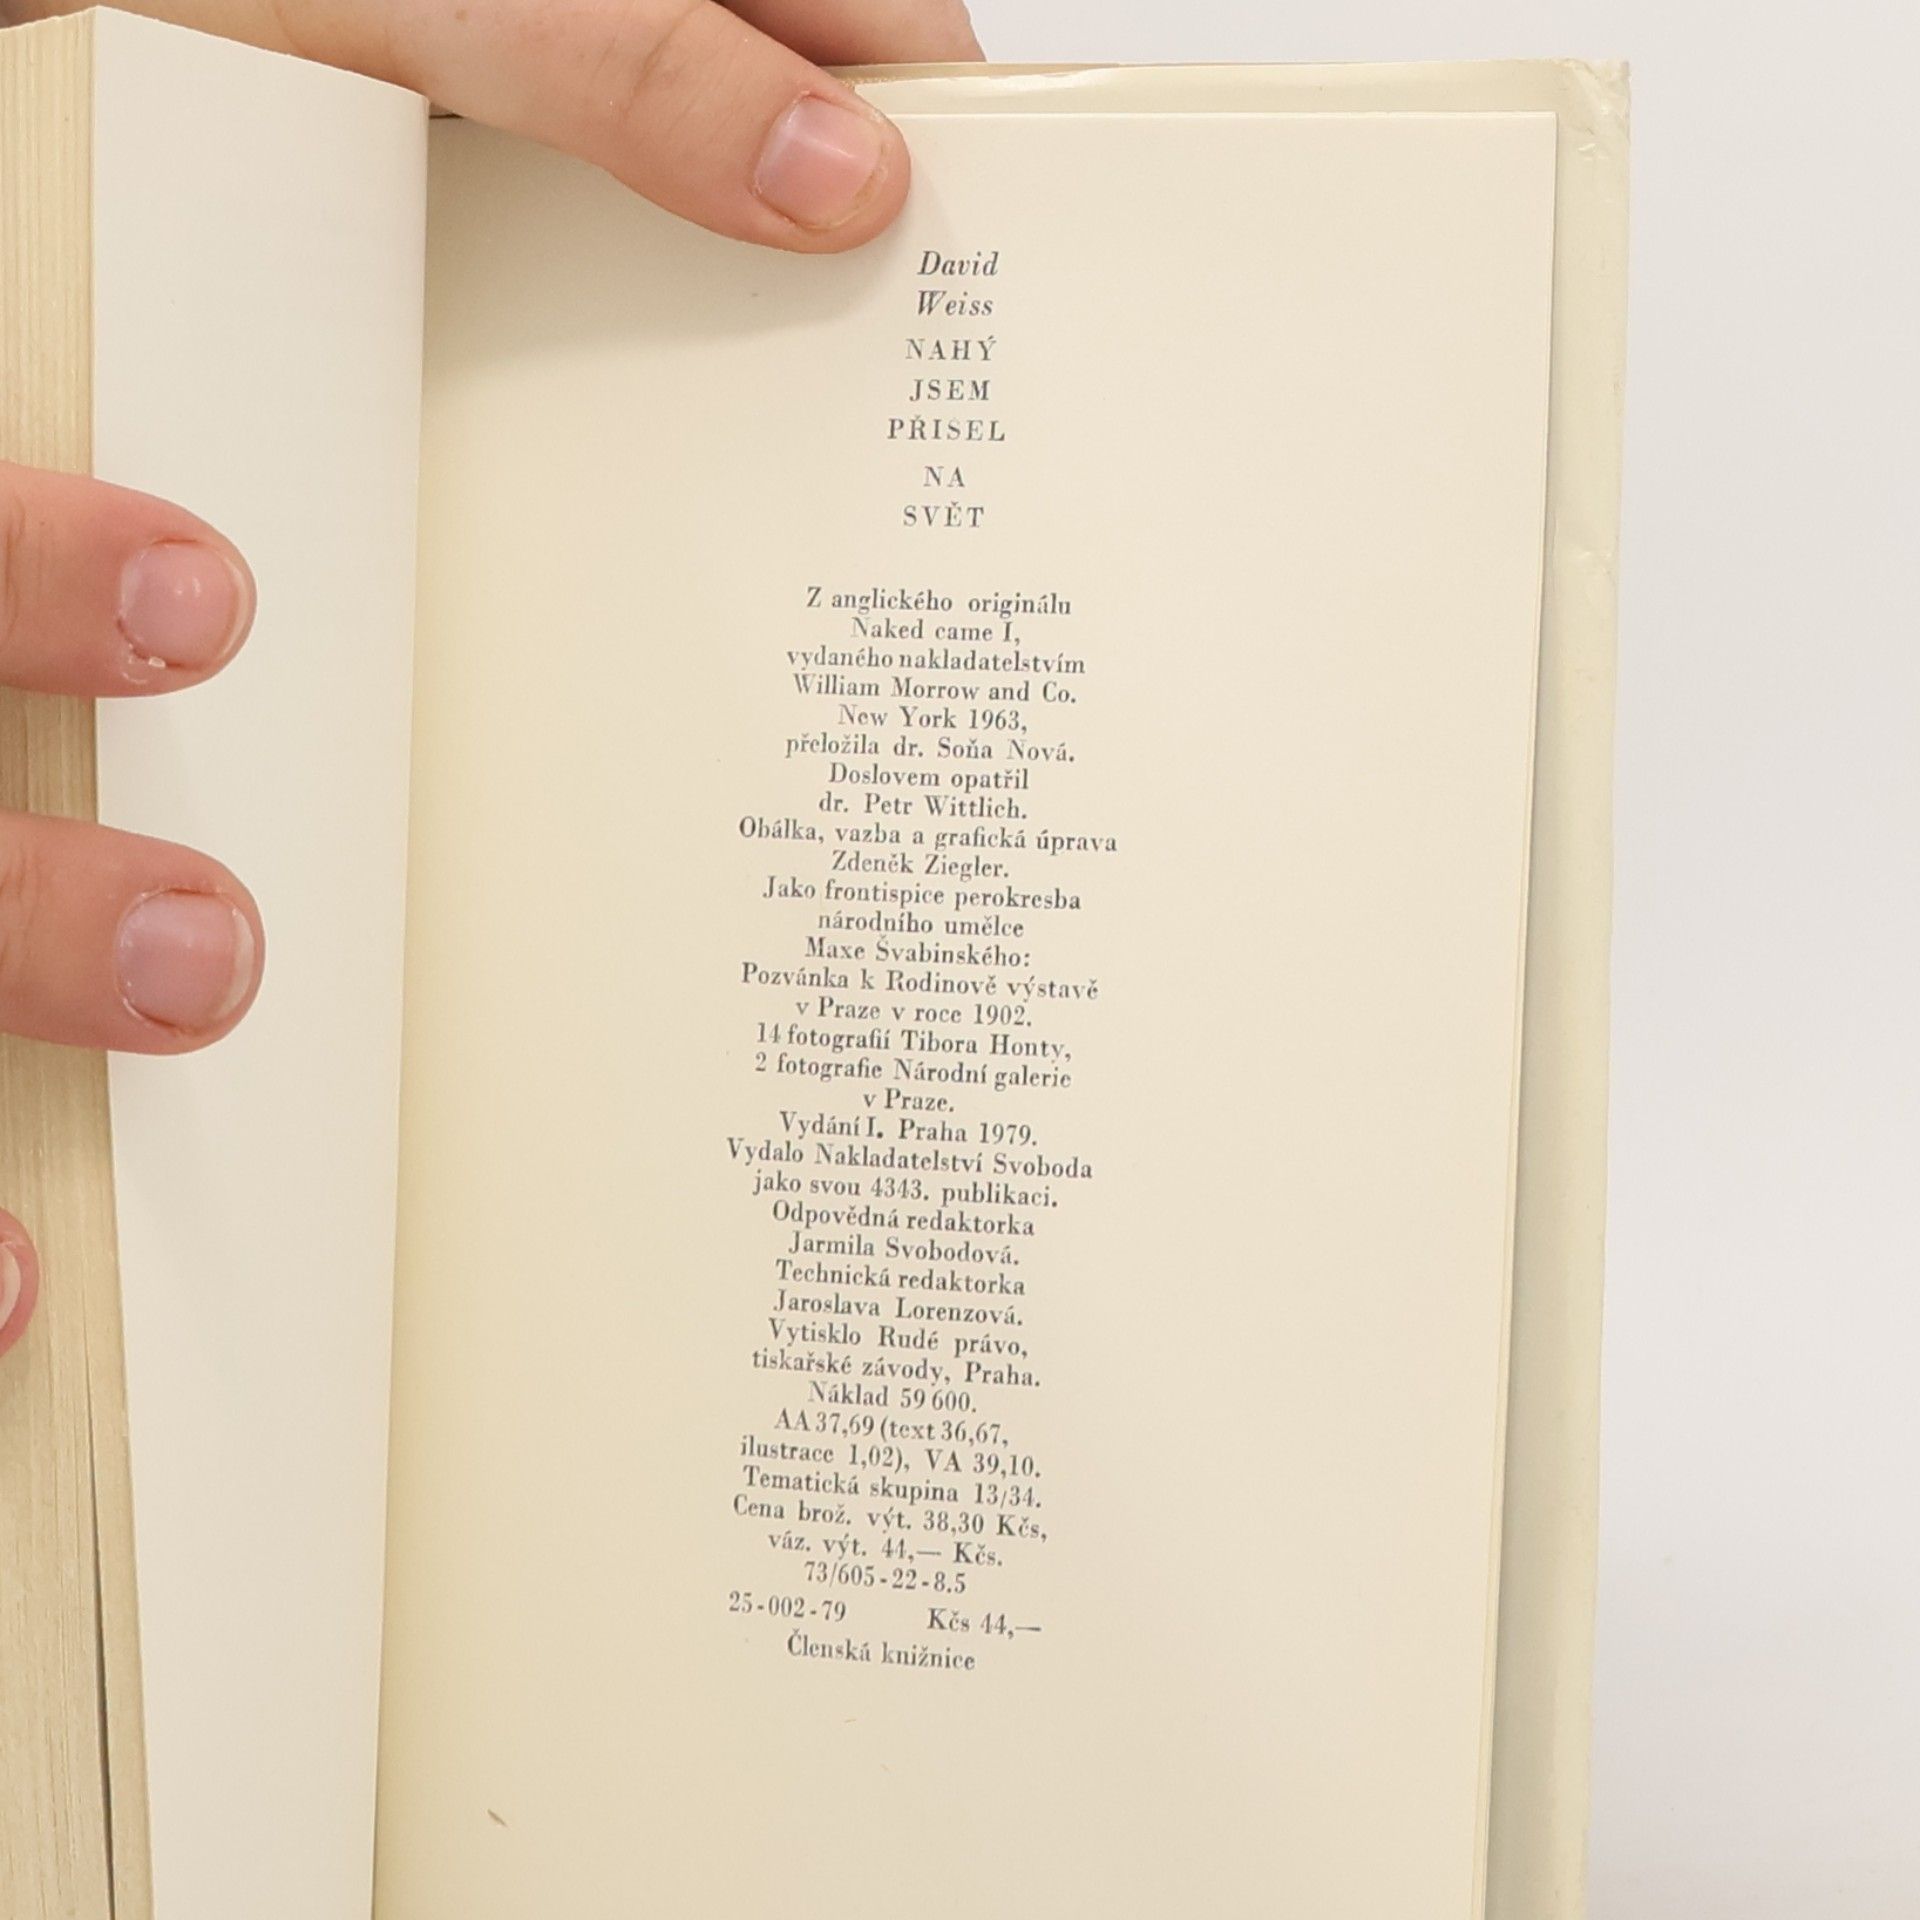 David
Weiss
NAHÝ
JSEM
PŘIŠEL
NA
SVĚT
Z anglického originálu
Naked came I,
vydaného nakladatelstvím
William Morrow and Co.
New York 1963,
přeložila dr. Soňa Nová.
Doslovem opatřil
dr. Petr Wittlich.
Obálka, vazba a grafická úprava
Zdeněk Ziegler.
Jako frontispice perokresba
národního umělce
Maxe Švabinského:
Pozvánka k Rodinově výstavě
v Praze v roce 1902.
14 fotografií Tibora Honty,
2 fotografie Národní galerie
v Praze.
Vydání I. Praha 1979.
Vydalo Nakladatelství Svoboda
jako svou 4343. publikaci.
Odpovědná redaktorka
Jarmila Svobodová.
Technická redaktorka
Jaroslava Lorenzová.
Vytisklo Rudé právo,
tiskařské závody, Praha.
Náklad 59 600.
AA 37,69 (text 36,67,
ilustrace 1,02), VA 39,10.
Tematická skupina 13/34.
Cena brož. výt. 38,30 Kčs,
váz. výt. 44,— Kčs.
73/605-22-8.5
25-002-79 Kčs 44,—
Členská knižnice